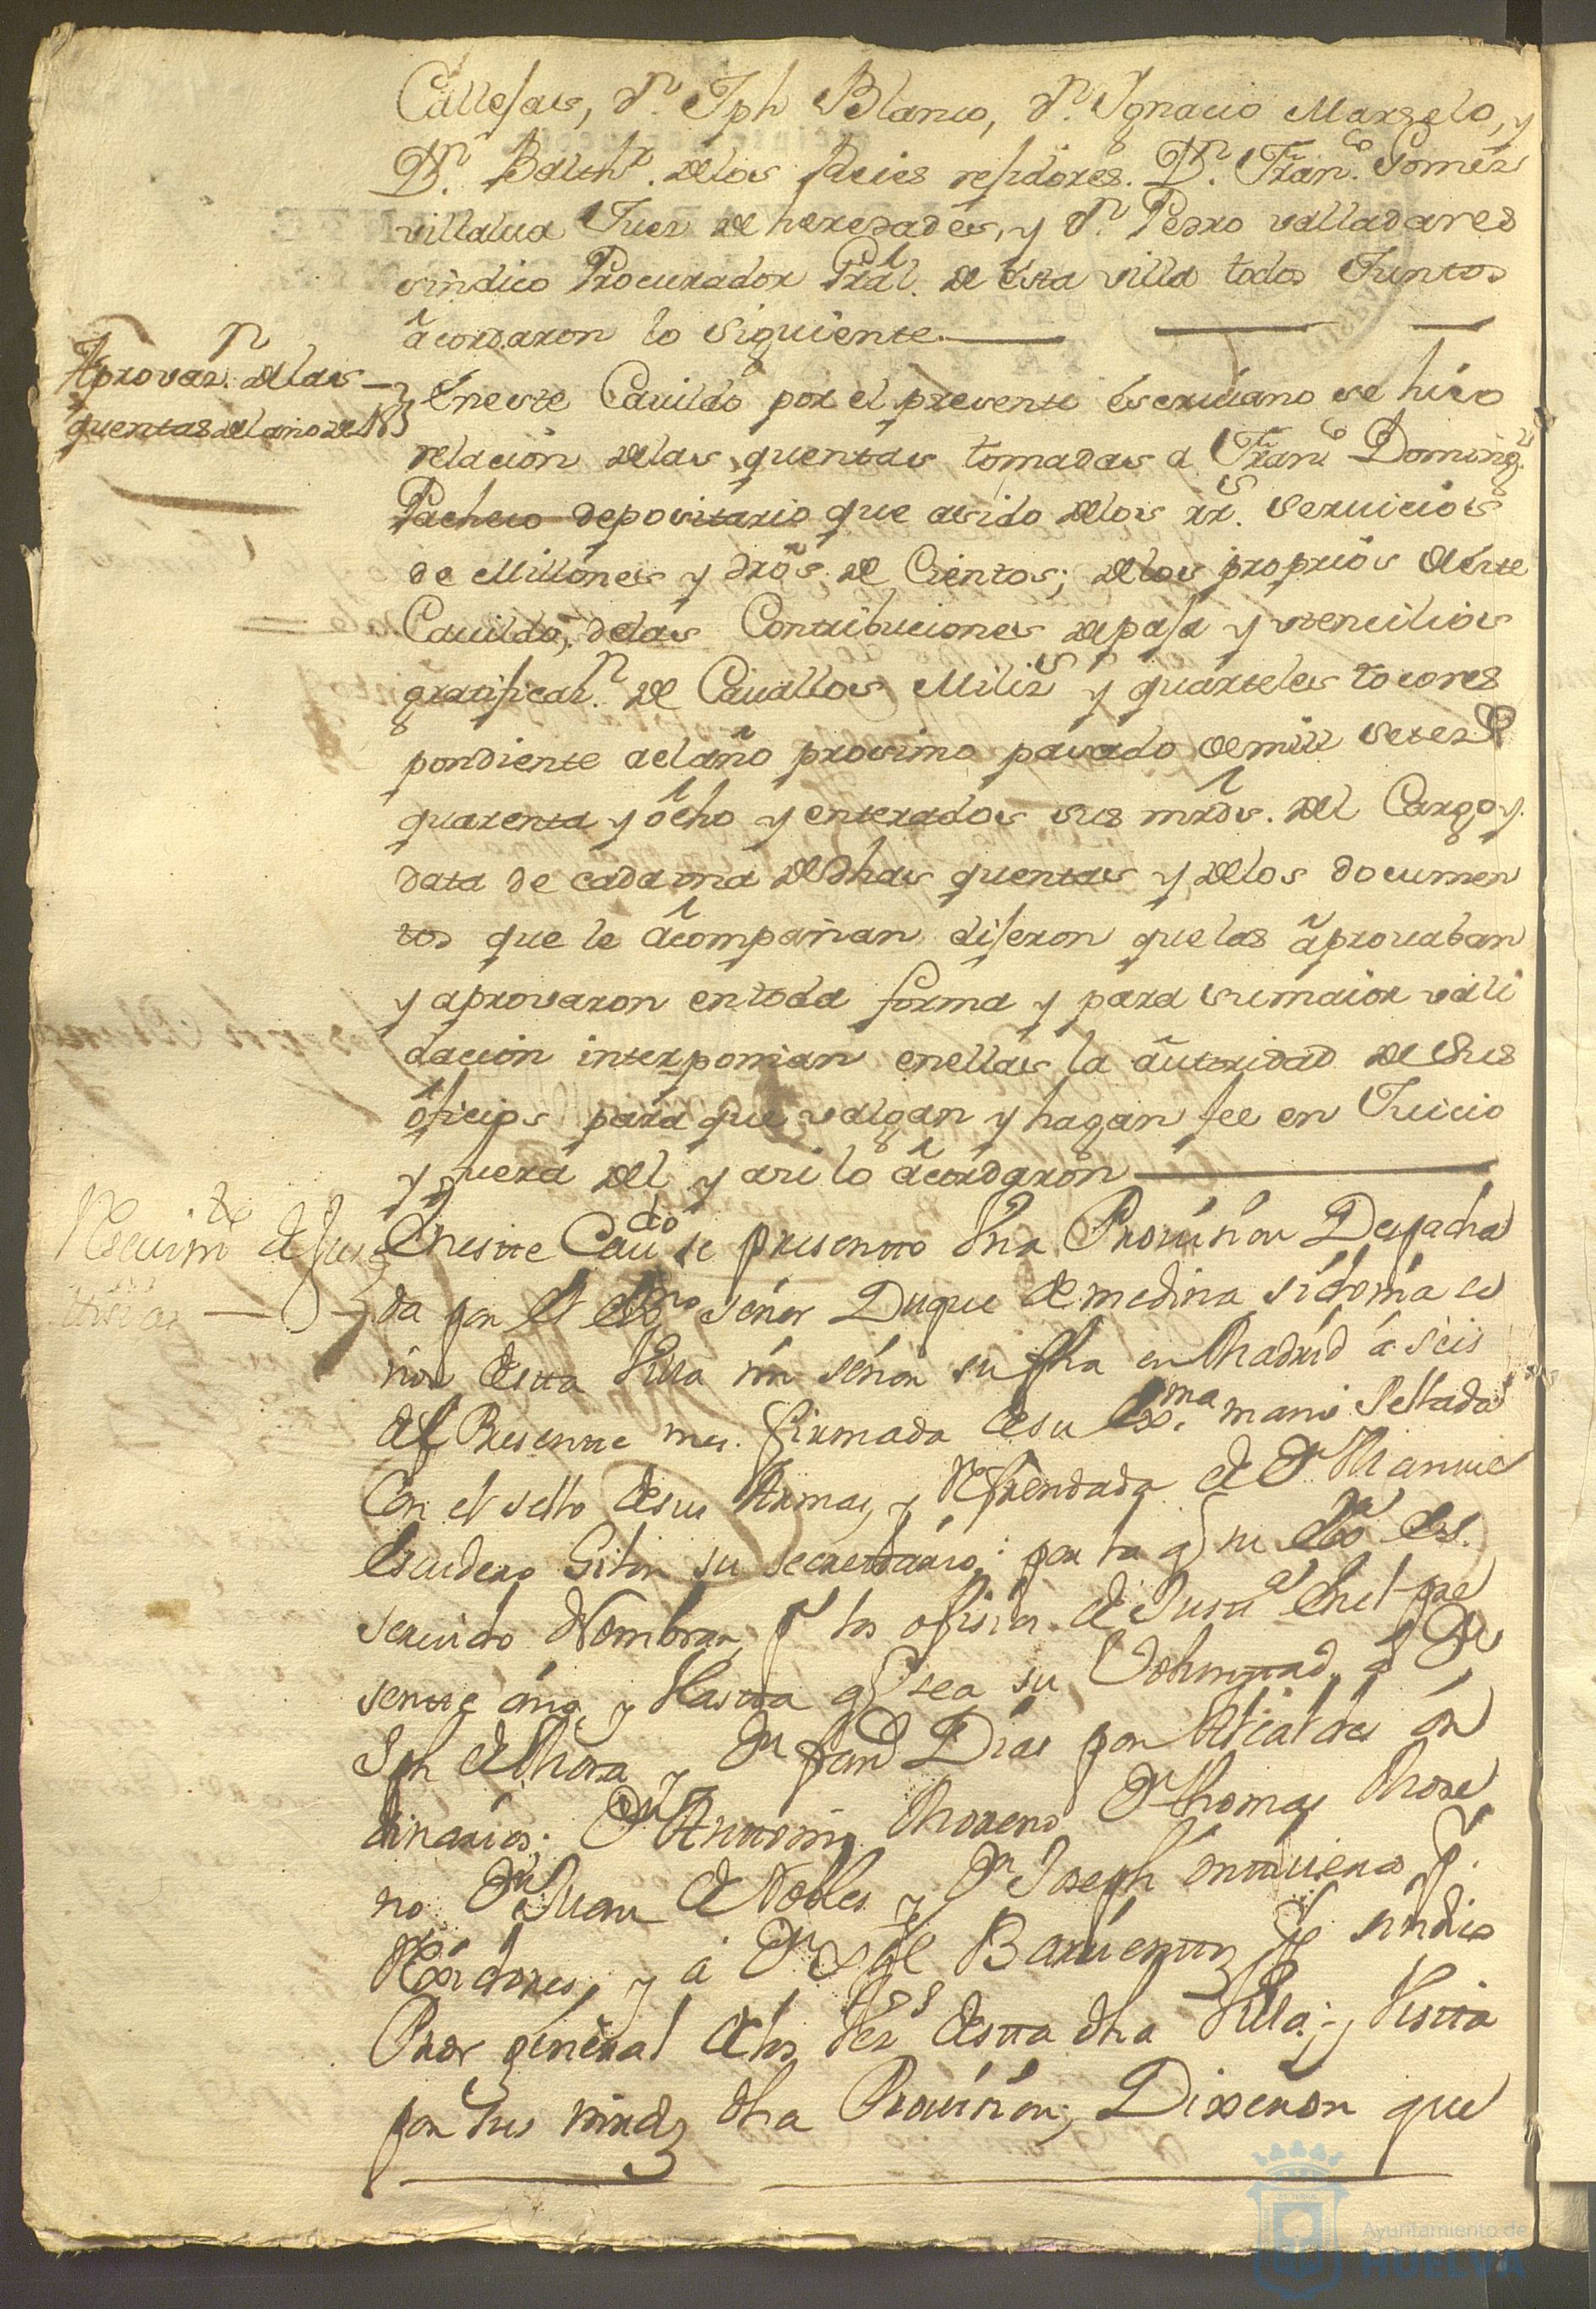 Callejas, Dn. Jph Blanco, Dn. Ygnacio Marzelo, y
Dn. Balthr. de los Reies rejidores. Dn. Franco. Gomez
villalva Juez de heredades, y Dn. Pedro valladares
sindico Procurador Gral. de esta villa todos Juntos
acordaron lo siguiente
Aprovazn. de las
quentas del año de
En este Cavildo por el presente escrivano se hizo
relacion de las quentas tomadas a Franco Doming.
Pacheco depositario que asido de los rr.s servicios
de Millones y dros. de Cientos; de los proprios de este
Cavildo, de las Contribuciones de paja y utencilios
gratificazn. de Cavallos Milizs y quarteles to corres
pondiente al año prosimo pasado de mill setez.
quarenta y ocho y enterados sus mrds. del Cargo y
data de cada una de dhas quentas y de los documen
tos que le acompañan dijeron que las aprovaban
y aprovaron en toda forma y para su maior vali
dacion interponian en ellas la autoridad de sus
oficios para que valgan y hagan fee en Juicio
y fuera del y asi lo acordaron
Resevimto de Jus
ticias
En este Cavdo se presento Una Provision Despacha
da por el Exmo señor Duque de medina sidonia se
ñor de esta Villa mi señor su fha en Madrid a seis
del Presente mes. firmada de su Exma. mano sellada
Con el sello de sus Armas, y Refrendada de Dn Manuel
Escudero Giton su secretario; por la q su Exa es.
servido Nombrar pa los ofisios de Justa En el pre
sente año y Hasta q sea su Voluntad, a Dn
Jph de Mora y Dn fernd Dias por Alcaldes or
dinarios; Dn Antonio Moreno Dn thomas More
no Dn Juan de Robles y Dn Joseph ontiveros pr.
Rexidores, y a Dn Barrientos pr sindico
Pror general de los Vezos de esta dha Villa; y Vista
por sus mrds dha Provision, Dixeron que
Ayuntamiento de
HUELVA